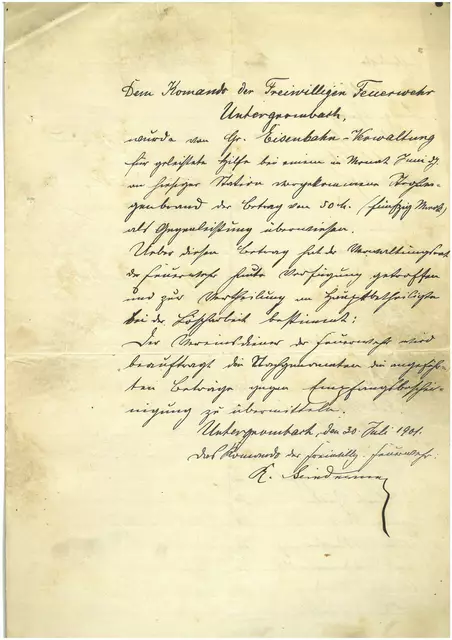 Dem Komando der Freiwilligen Feuerwehr
Untergrombach,
wurde von Gr. Eisenbahn-Verwaltung
für geleistete Hilfe bei einem im Monat Juni dJ.
an hiesiger Station vorgekommenen
der Betrag von 50 M. (fünfzig Mark)
als Gegenleistung überwiesen.
Ueber diesen Betrag hat der Verwaltungsrat
der Feuerwehr heute Verfügung getroffen
und zur Vertheilung an Hauptbetheiligte
bei der Löscharbeit bestimmt:
Der Vereinsdiener der Feuerwehr wird
beauftragt die Nachgenannten die angeführ-
ten Betrage gegen Empfangsbeschei-
nigung zu übermitteln.
Untergrombach, den 20. Juli 1901.
Das Komando der Freiwillig. Feuerwehr:
K.